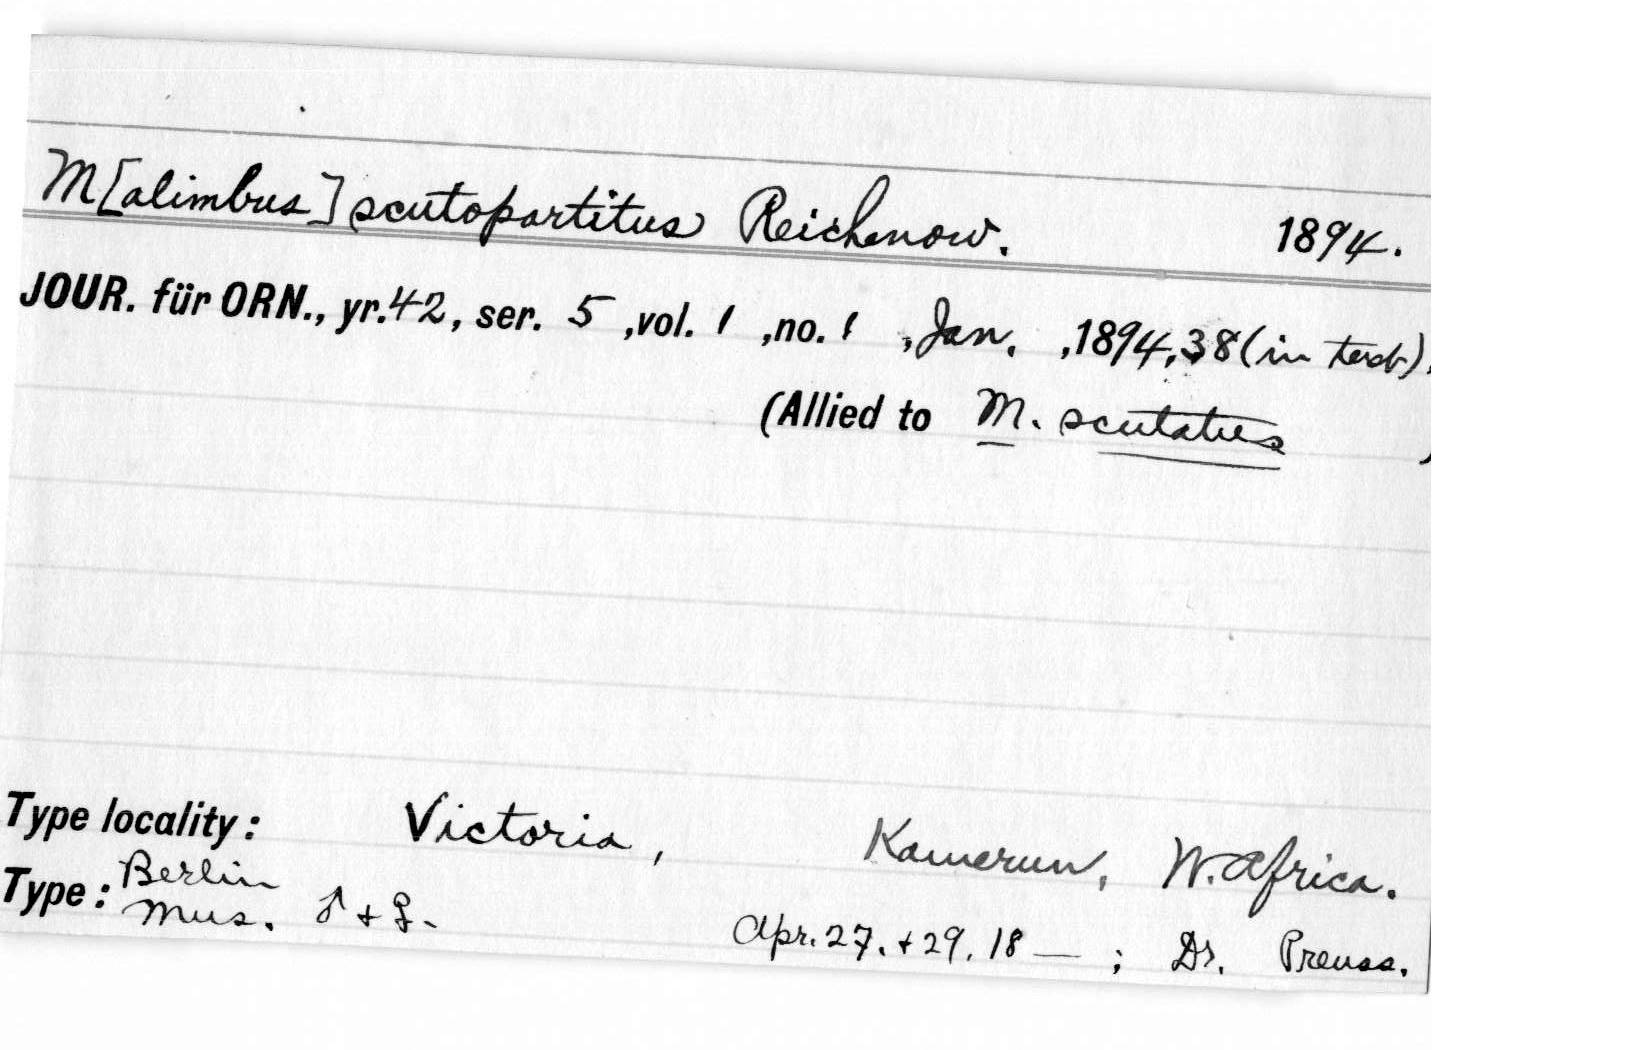 M[alimbus] scutopartitus Reichenow. 1894.
JOUR. für ORN., yr.42, ser. 5 ,vol. 1 ,no. 1 , Jan. ,1894,38(in text).
(Allied to M. scutatus )
Type locality: Victoria, Kamerun, W. Africa.
Type: Berlin Mus. ♂ + ♀. Apr. 27. + 29. 18— ; Dr. Preuss.